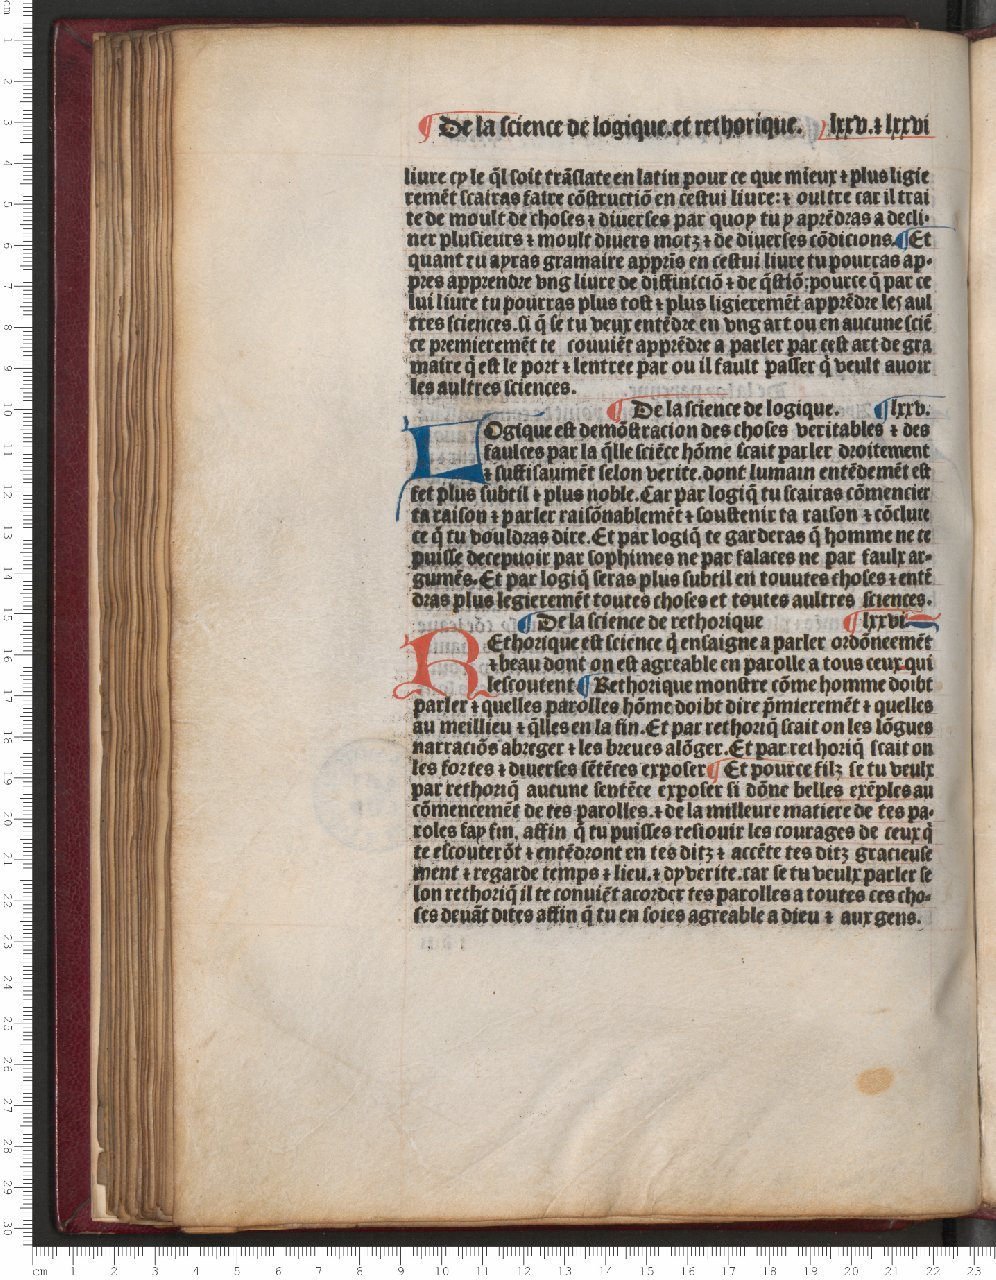 ¶ De la science de logique.et rethorique. lxxv.⁊ lxxvi
liure cy le q̃l soit trãslate en latin pour ce que mieux ⁊ plus ligie
remẽt scairas faire cõstructiõ en cestui liure:⁊ oultre car il trai
te de moult de choses ⁊ diuerses par quoy tu y aprẽdras a decli-
ner plusieurs ⁊ moult diuers motz ⁊ de diuerses cõdicions.¶ Et
quant tu ayras gramaire apprĩs en cestui liure tu pourras ap-
pres apprendre vng liure de diffinicciõ ⁊ de q̃stiõ:pource q̃ par ce
lui liure tu pourras plus tost ⁊ plus ligieremẽt apprẽdre les aul
tres sciences.si q̃ se tu veux entẽdre en vng art ou en aucune sciẽ
ce premieremẽt te couuiẽt apprẽdre a parler par cest art de gra
maire q̃ est le port ⁊ lentree par ou il fault passer q̃ veult auoir
les aultres sciences.
¶ De la science de logique. ¶ lxxv.
LOgique est demõstracion des choses veritables ⁊ des
faulces par la q̃lle sciẽce hõme scait parler droitement
⁊ suffisaumẽt selon verite.dont lumain entẽdemẽt est
fet plus subtil ⁊ plus noble.Car par logiq̃ tu scairas cõmencier
ta raison ⁊ parler raisõnablemẽt ⁊ soustenir ta raison ⁊ cõclure
ce q̃ tu vouldras dire.Et par logiq̃ te garderas q̃ homme ne te
puisse decepuoir par sophimes ne par falaces ne par faulx ar-
gumẽs.Et par logiq̃ seras plus subtil en touutes choses ⁊ entẽ
dras plus legieremẽt toutes choses et toutes aultres sciences.
¶ De la science de rethorique ¶ lxxvi
REthorique est science q̃ ensaigne a parler ordõneemẽt
⁊ beau dont on est agreable en parolle a tous ceux qui
lescoutent ¶ Rethorique monstre cõme homme doibt
parler ⁊ quelles parolles hõme doibt dire p̃mieremẽt ⁊ quelles
au meillieu ⁊ q̃lles en la fin.Et par rethoriq̃ scait on les lõgues
narraciõs abreger ⁊ les breues alõger.Et par rethoriq̃ scait on
les fortes ⁊ diuerses sẽtẽces exposer ¶ Et pource filz se tu veulx
par rethoriq̃ autune sentẽce exposer si dõne belles exẽples au
cõmencemẽt de tes parolles.⁊ de la milleure matiere de tes pa-
roles fay fin, affin q̃ tu puisses resiouir les courages de ceux q̃
te escouterõt ⁊ entẽdront en tes ditz ⁊ accẽte tes ditz gracieuse
ment ⁊ regarde temps ⁊ lieu.⁊ dy verite.car se tu veulx parler se
lon rethoriq̃ il te conuiẽt acorder tes parolles a toutes ces cho-
ses deuãt dites affin q̃ tu en soies agreable a dieu ⁊ aux gens.